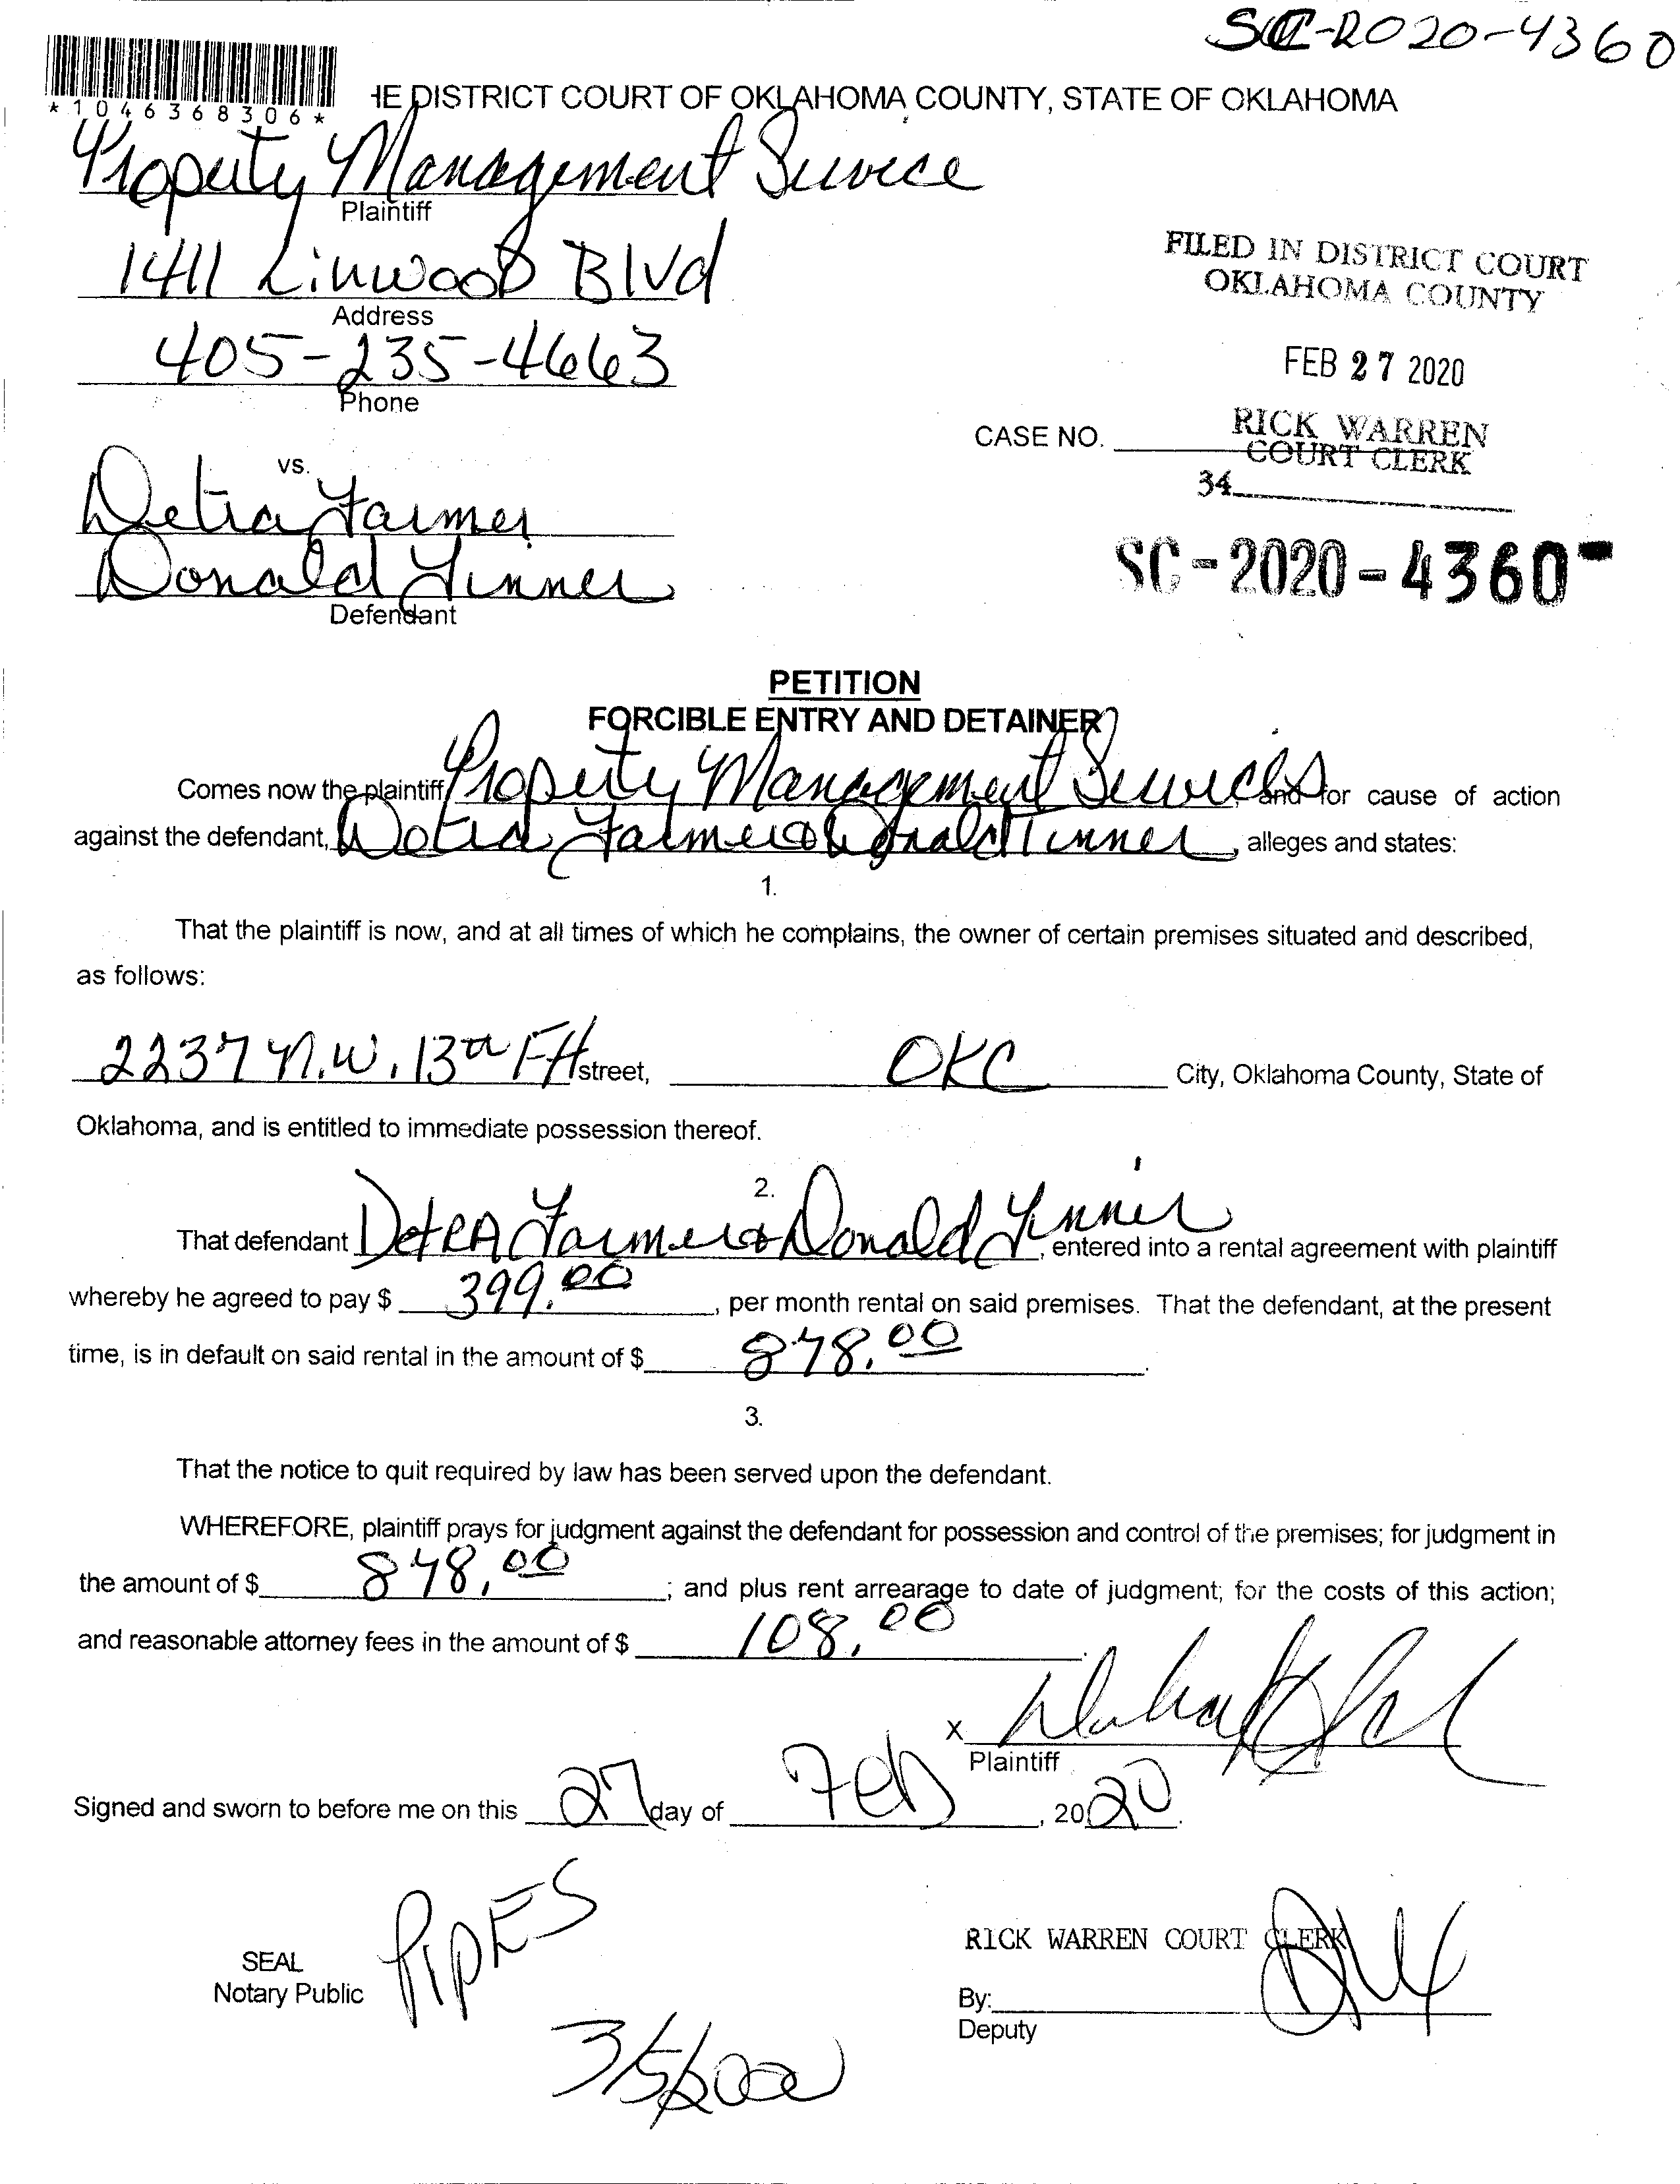 SC-2020-4360
*1046368306*
HE DISTRICT COURT OF OKLAHOMA COUNTY, STATE OF OKLAHOMA
Property Management Service
Plaintiff
1411 Linwood Blvd
Address
405-235-4663
Phone
FILED IN DISTRICT COURT
OKLAHOMA COUNTY
FEB 27 2020
RICK WARREN
COURT CLERK
CASE NO.
34
vs.
Detra Farmer
Donald Tinner
Defendant
SC-2020-4360-
PETITION
FORCIBLE ENTRY AND DETAINER
Comes now the plaintiff, Property Management Services, and for cause of action
against the defendant, Detra Farmer & Donald Tinner, alleges and states:
1.
That the plaintiff is now, and at all times of which he complains, the owner of certain premises situated and described,
as follows:
2237 N.W. 13th street, OKC City, Oklahoma County, State of
Oklahoma, and is entitled to immediate possession thereof.
2.
That defendant DetRA Farmer & Donald Tinner, entered into a rental agreement with plaintiff
whereby he agreed to pay $ 399.00, per month rental on said premises. That the defendant, at the present
time, is in default on said rental in the amount of $ 878.00.
3.
That the notice to quit required by law has been served upon the defendant.
WHEREFORE, plaintiff prays for judgment against the defendant for possession and control of the premises; for judgment in
the amount of $ 878.00; and plus rent arrearage to date of judgment; for the costs of this action;
and reasonable attorney fees in the amount of $ 108.00.
X
Plaintiff
Signed and sworn to before me on this 27 day of Feb, 2020.
PipES
SEAL
Notary Public
RICK WARREN COURT CLERK
By:
Deputy